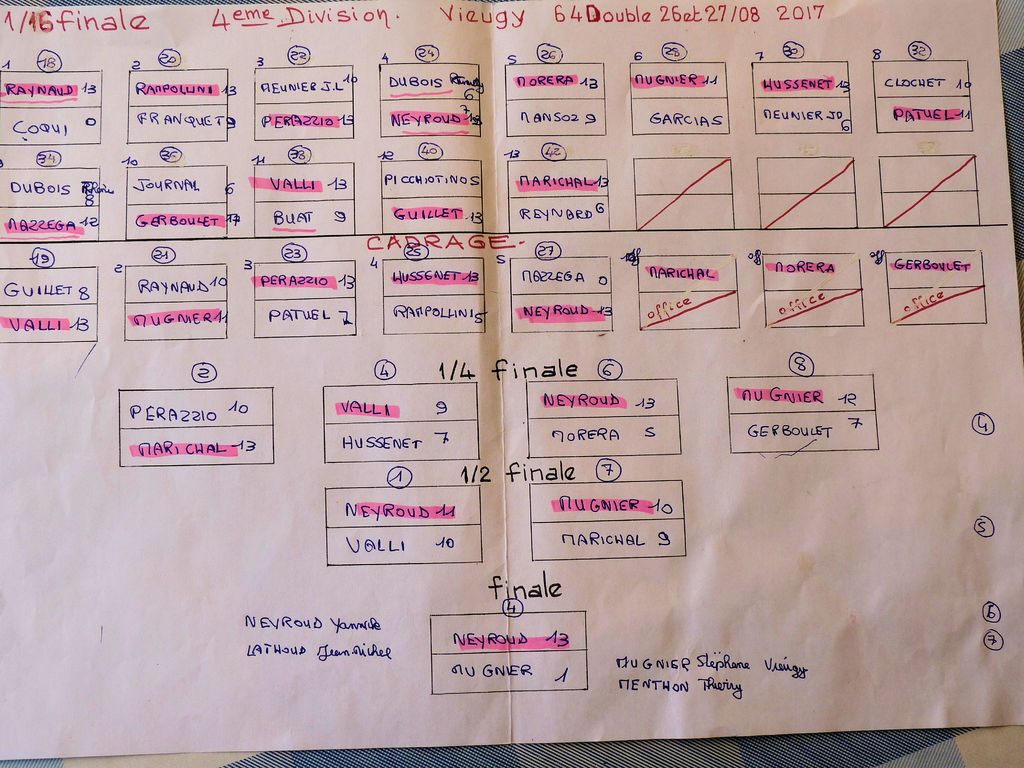 1/16 finale 4eme Division. Vieugy 64 Double 26 et 27/08 2017
1 18 2 20 3 22 4 24 5 26 6 28 7 30 8 32
RAYNAUD 13 RAMPOLLINI 13 MEUNIER J.L 10 DUBOIS 6 MORERA 13 MUGNIER 11 HUSSENET CLOCHET 10
COQUI 0 FRANQUET 9 PERAZZIO 13 NEYROUD MANSOZ 9 GARCIAS MEUNIER JD 6 PATUEL 11
9 34 10 36 11 38 12 40 13 42
DUBOIS 8 JOURNAL 6 VALLI 13 PICCHIOTINO 5 MARICHAL 13
MAZZEGA 12 GERBOULET BUAT 9 GUILLET 13 REYNARD 6
CADRAGE.
19 2 21 3 23 4 25 5 27 off off off
GUILLET 8 RAYNAUD 10 PERAZZIO 13 HUSSENET 13 MAZZEGA 0 MARICHAL MORERA GERBOULET
VALLI 13 MUGNIER 11 PATUEL 7 RAMPOLLINI 5 NEYROUD 13 office office office
1/4 finale
2 4 6 8
PERAZZIO 10 VALLI 9 NEYROUD 13 MUGNIER 12
MARICHAL 13 HUSSENET 7 MORERA 5 GERBOULET 7
4
1/2 finale
1 7
NEYROUD 11 MUGNIER 10
VALLI 10 MARICHAL 9
5
finale
4
NEYROUD Yannick
LATHOUD Jean Michel
NEYROUD 13
MUGNIER 1
MUGNIER Stéphane Vieugy
MENTHON Thierry
6
7